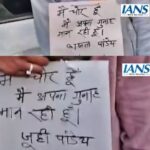 IANS
मैं चोर हूँ
मैं अपना गुनाह
मान रही हूँ।
पाण्डेय
IANS
मैं चोर हूँ
मैं अपना गुनाह
मान रही हूँ।
जूही पांडेय